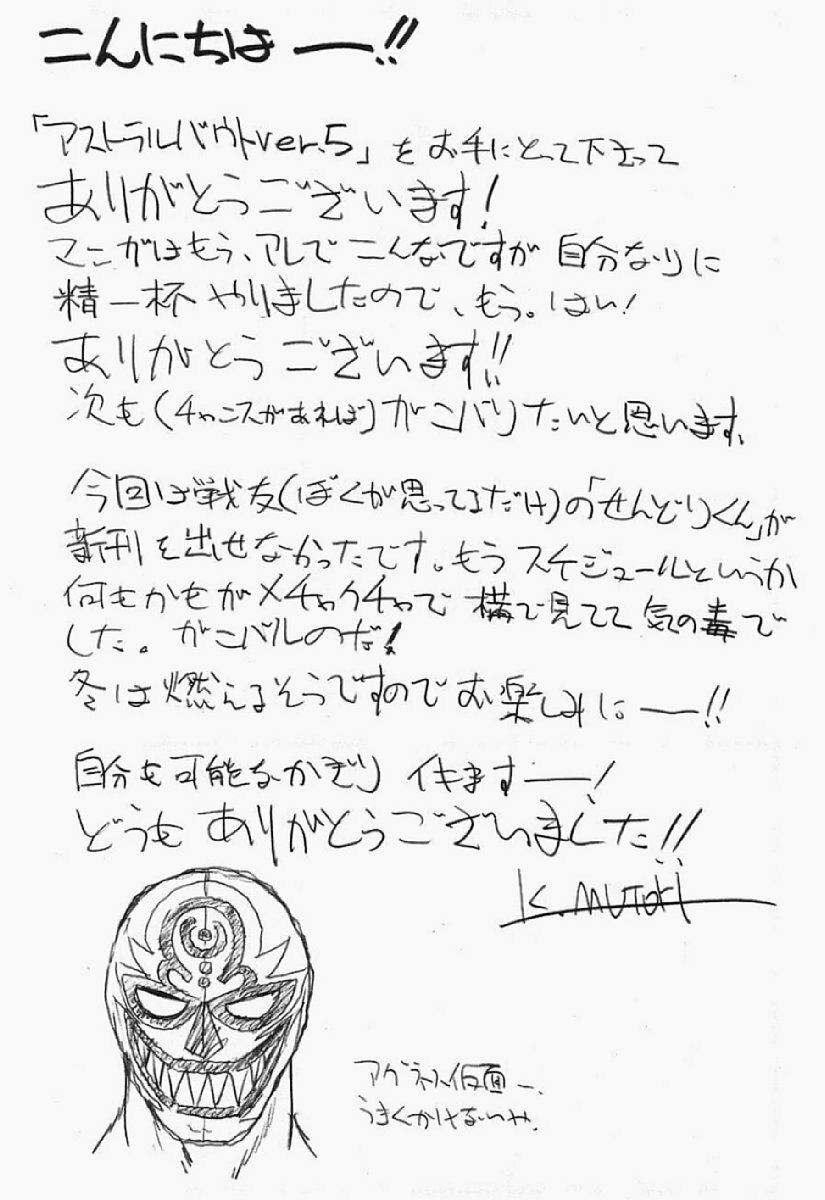 こんにちはー!!
「アストラルバウトver.5」をお手にとって下さって
ありがとうございます!
マンガはもう、アレでこんなですが 自分なりに
精一杯 やりましたので、もう。はい!
ありがとうございます!!
次も(チャンスがあれば)ガンバりたいと思います、
今回は戦友(ぼくが思ってるだけ)の「せんどりくん」が
新刊を出せなかったです。もう スケジュールというか
何もかもがメチャクチャで 横で見てて 気の毒で
した。ガンバルのだ!
冬は燃えるそうですので お楽しみにー!!
自分も可能なかぎり イキますー!
どうも ありがとうございました!!
K.MUTOKI
アグネス仮面ー、
うまくかけないや.